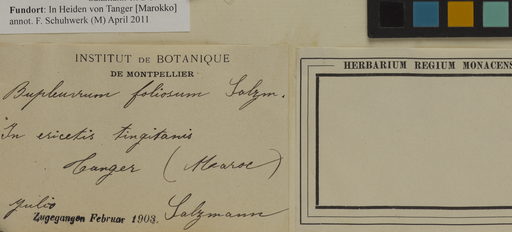 Fundort: In Heiden von Tanger [Marokko]
annot. F. Schuhwerk (M) April 2011
INSTITUT DE BOTANIQUE
DE MONTPELLIER
Bupleurum foliosum Salzm.
In ericetis tingitanis
Tanger (Maroc)
Julio
Zugegangen Februar 1903.
Salzmann
HERBARIUM REGIUM MONACENS